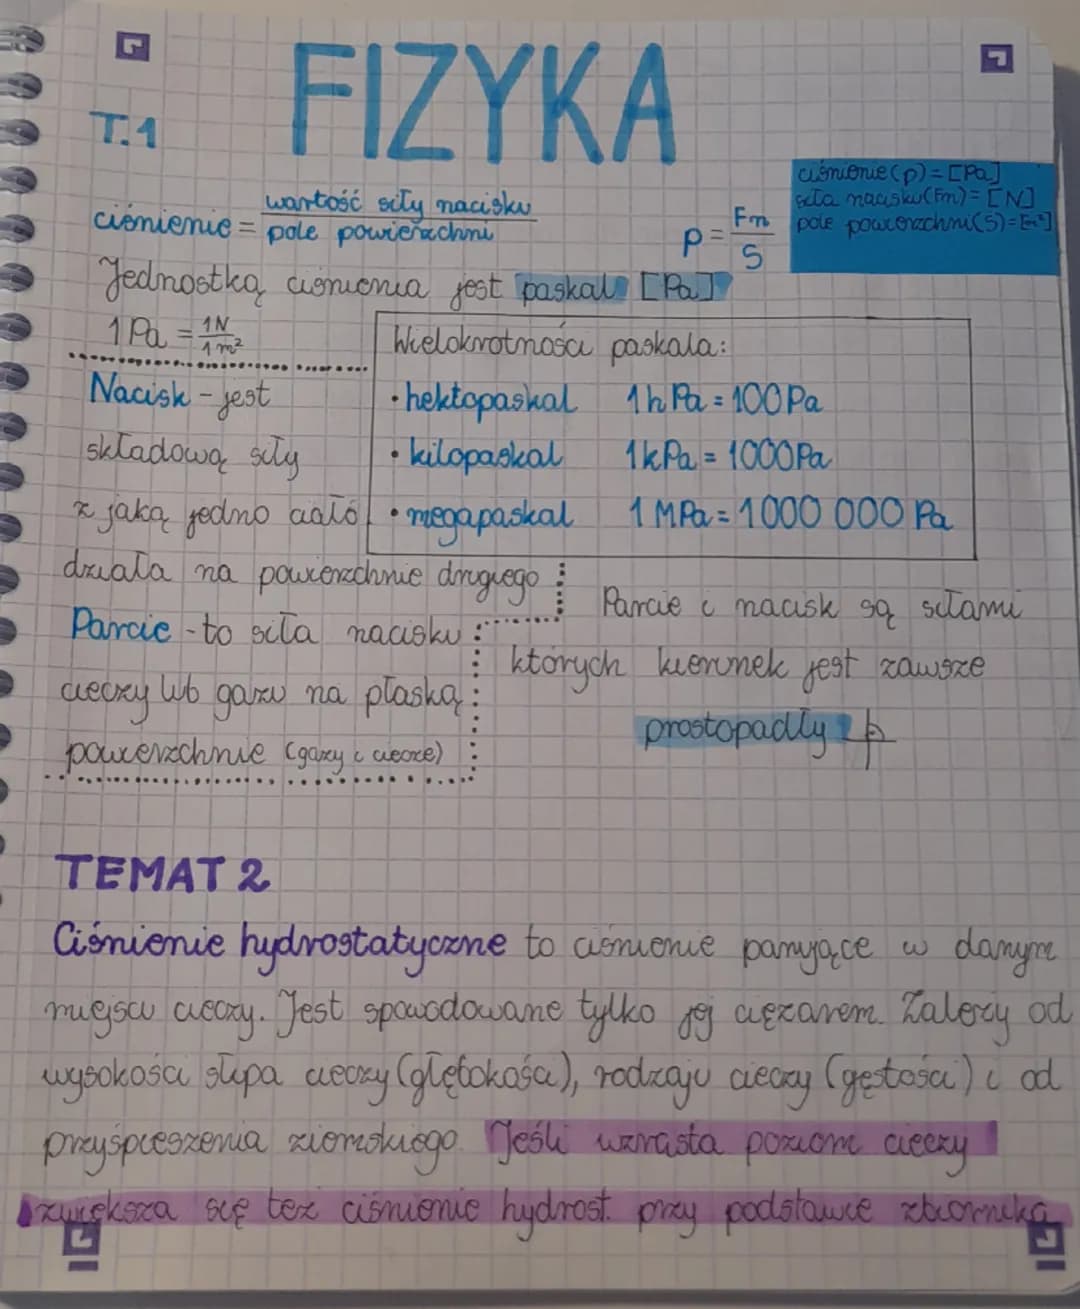 FIZYKA
T.1
ciśnienie = wartość siły nacisku / pole powierzchni
p = Fn / S
ciśnienie (p) = [Pa]
siła nacisku (Fn) = [N]
pole powierzchni (S) = [m²]
Jednostką ciśnienia jest paskal [Pa]
1 Pa = 1N / 1m²
Wielokrotności paskala:
• hektopaskal 1 hPa = 100 Pa
• kilopaskal 1 kPa = 1000 Pa
• megapaskal 1 MPa = 1000 000 Pa
Nacisk - jest
składową siły
z jaką jedno ciało
działa na powierzchnie drugiego
Parcie - to siła nacisku
cieczy lub gazu na płaską
powierzchnie (gazy i ciecze)
Parcie i nacisk są siłami
których kierunek jest zawsze
prostopadły
TEMAT 2
Ciśnienie hydrostatyczne to ciśnienie panujące w danym
miejscu cieczy. Jest spowodowane tylko jej ciężarem. Zależy od
wysokości słupa cieczy (głębokości), rodzaju cieczy (gęstości) i od
przyśpieszenia ziemskiego. Jeśli wzrasta poziom cieczy
zwiększa się też ciśnienie hydrost. przy podstawie zbiornika